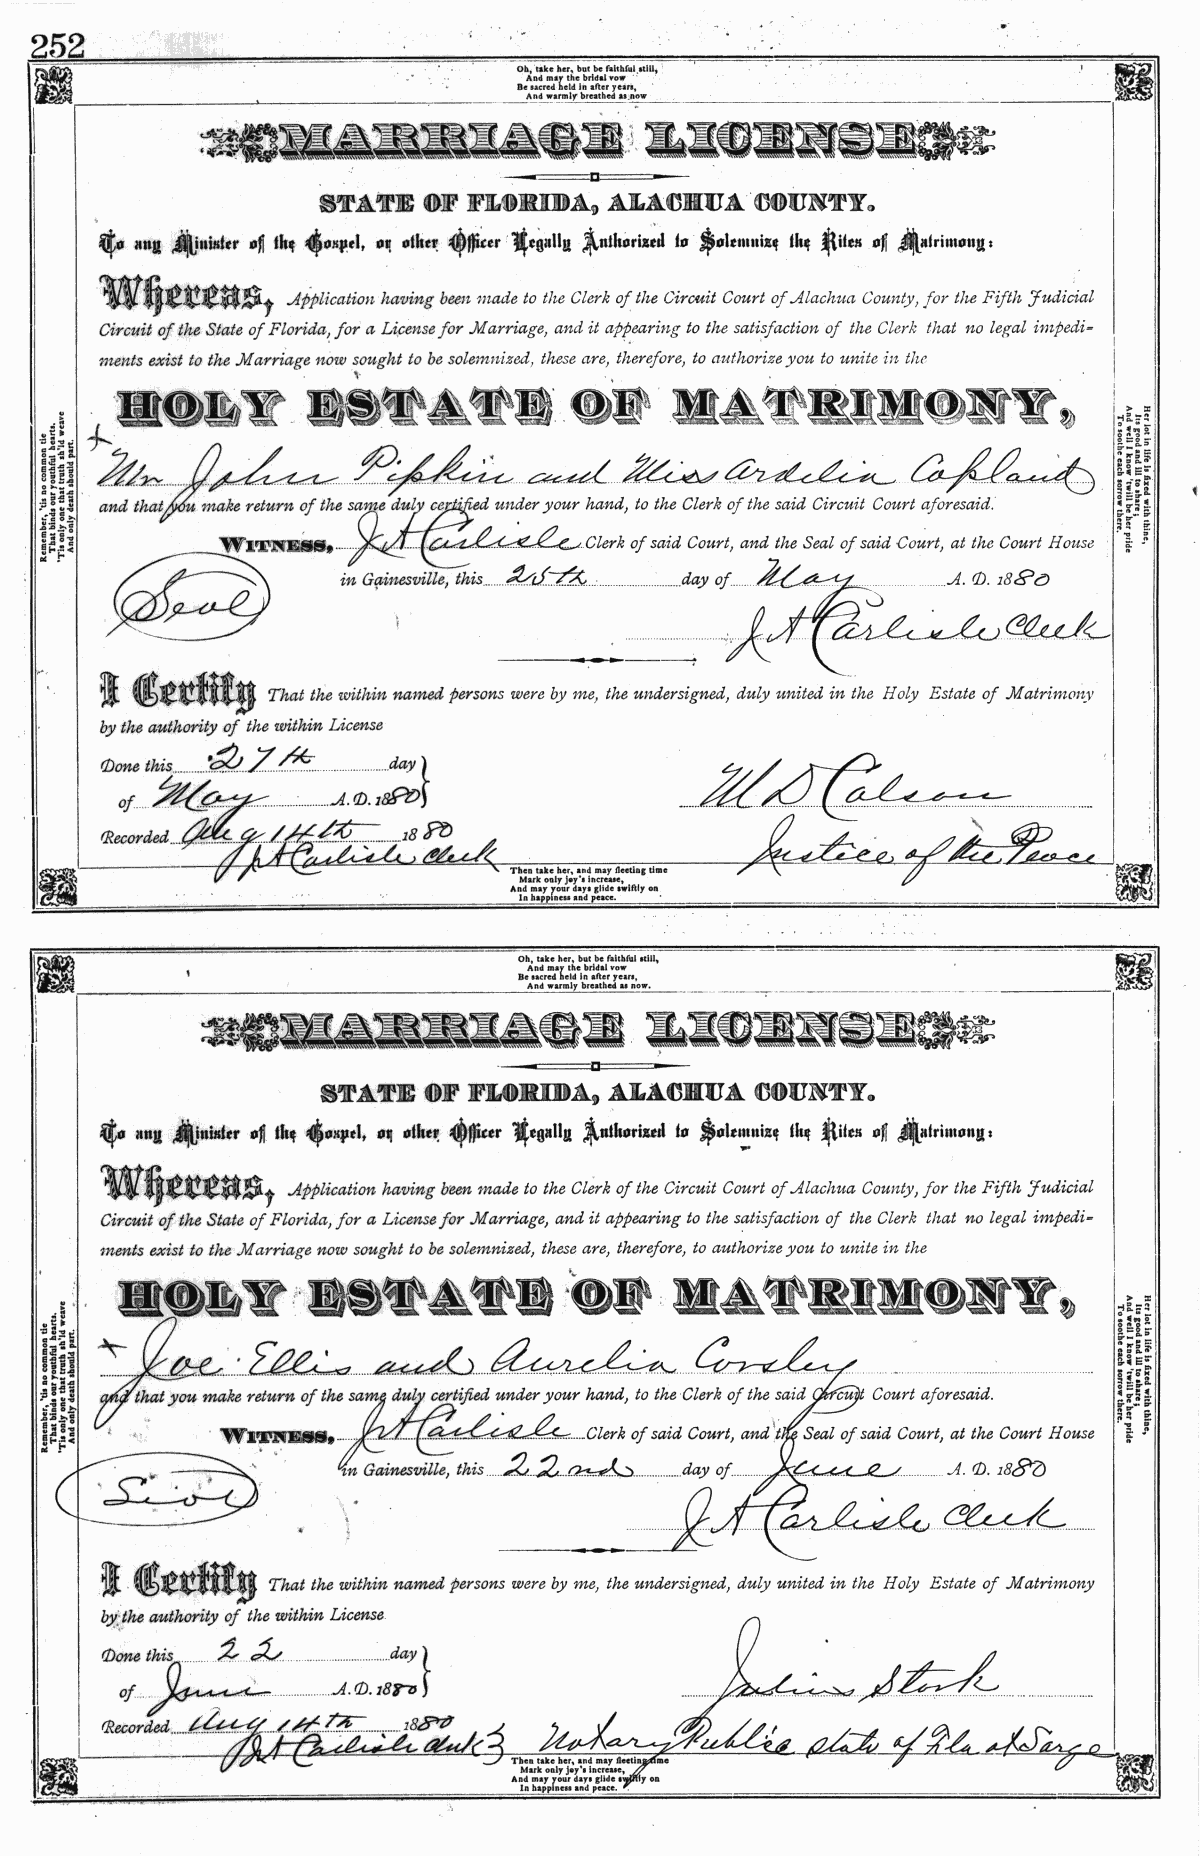 252
Oh, take her, but be faithful still,
And may the bridal vow
Be sacred held in after years,
And warmly breathed as now
MARRIAGE LICENSE
STATE OF FLORIDA, ALACHUA COUNTY.
To any Minister of the Gospel, or other Officer Legally Authorized to Solemnize the Rites of Matrimony:
Whereas, Application having been made to the Clerk of the Circuit Court of Alachua County, for the Fifth Judicial
Circuit of the State of Florida, for a License for Marriage, and it appearing to the satisfaction of the Clerk that no legal impedi=
ments exist to the Marriage now sought to be solemnized, these are, therefore, to authorize you to unite in the
HOLY ESTATE OF MATRIMONY,
x
Mr John Pipkin and Miss Ardelia Copland
and that you make return of the same duly certified under your hand, to the Clerk of the said Circuit Court aforesaid.
WITNESS, J A Carlisle Clerk of said Court, and the Seal of said Court, at the Court House
in Gainesville, this 25th day of May A. D. 1880
Seal
J A Carlisle Clerk
I Certify That the within named persons were by me, the undersigned, duly united in the Holy Estate of Matrimony
by the authority of the within License
Done this 27th day
of May A. D. 1880
M D Colson
Recorded Aug 14th 1880
J A Carlisle Clerk
Justice of the Peace
Then take her, and may fleeting time
Mark only joy's increase,
And may your days glide swiftly on
In happiness and peace.
Remember, 'tis no common tie
That binds our youthful hearts.
'Tis only one that truth sh'ld weave
And only death should part.
Her lot in life is fixed with thine,
Its good and ill to share;
And well I know 'twill be her pride
To soothe each sorrow there.
Oh, take her, but be faithful still,
And may the bridal vow
Be sacred held in after years,
And warmly breathed as now.
MARRIAGE LICENSE
STATE OF FLORIDA, ALACHUA COUNTY.
To any Minister of the Gospel, or other Officer Legally Authorized to Solemnize the Rites of Matrimony:
Whereas, Application having been made to the Clerk of the Circuit Court of Alachua County, for the Fifth Judicial
Circuit of the State of Florida, for a License for Marriage, and it appearing to the satisfaction of the Clerk that no legal impedi=
ments exist to the Marriage now sought to be solemnized, these are, therefore, to authorize you to unite in the
HOLY ESTATE OF MATRIMONY,
x
Joe Ellis and Aurelia Corsley
and that you make return of the same duly certified under your hand, to the Clerk of the said Circuit Court aforesaid.
WITNESS, J A Carlisle Clerk of said Court, and the Seal of said Court, at the Court House
in Gainesville, this 22nd day of June A. D. 1880
Seal
J A Carlisle Clerk
I Certify That the within named persons were by me, the undersigned, duly united in the Holy Estate of Matrimony
by the authority of the within License
Done this 22 day
of June A. D. 1880
Julius Stork
Recorded Aug 14th 1880
J A Carlisle Clerk
Notary Public State of Fla at Large
Then take her, and may fleeting time
Mark only joy's increase,
And may your days glide swiftly on
In happiness and peace.
Remember, 'tis no common tie
That binds our youthful hearts.
'Tis only one that truth sh'ld weave
And only death should part.
Her lot in life is fixed with thine,
Its good and ill to share;
And well I know 'twill be her pride
To soothe each sorrow there.